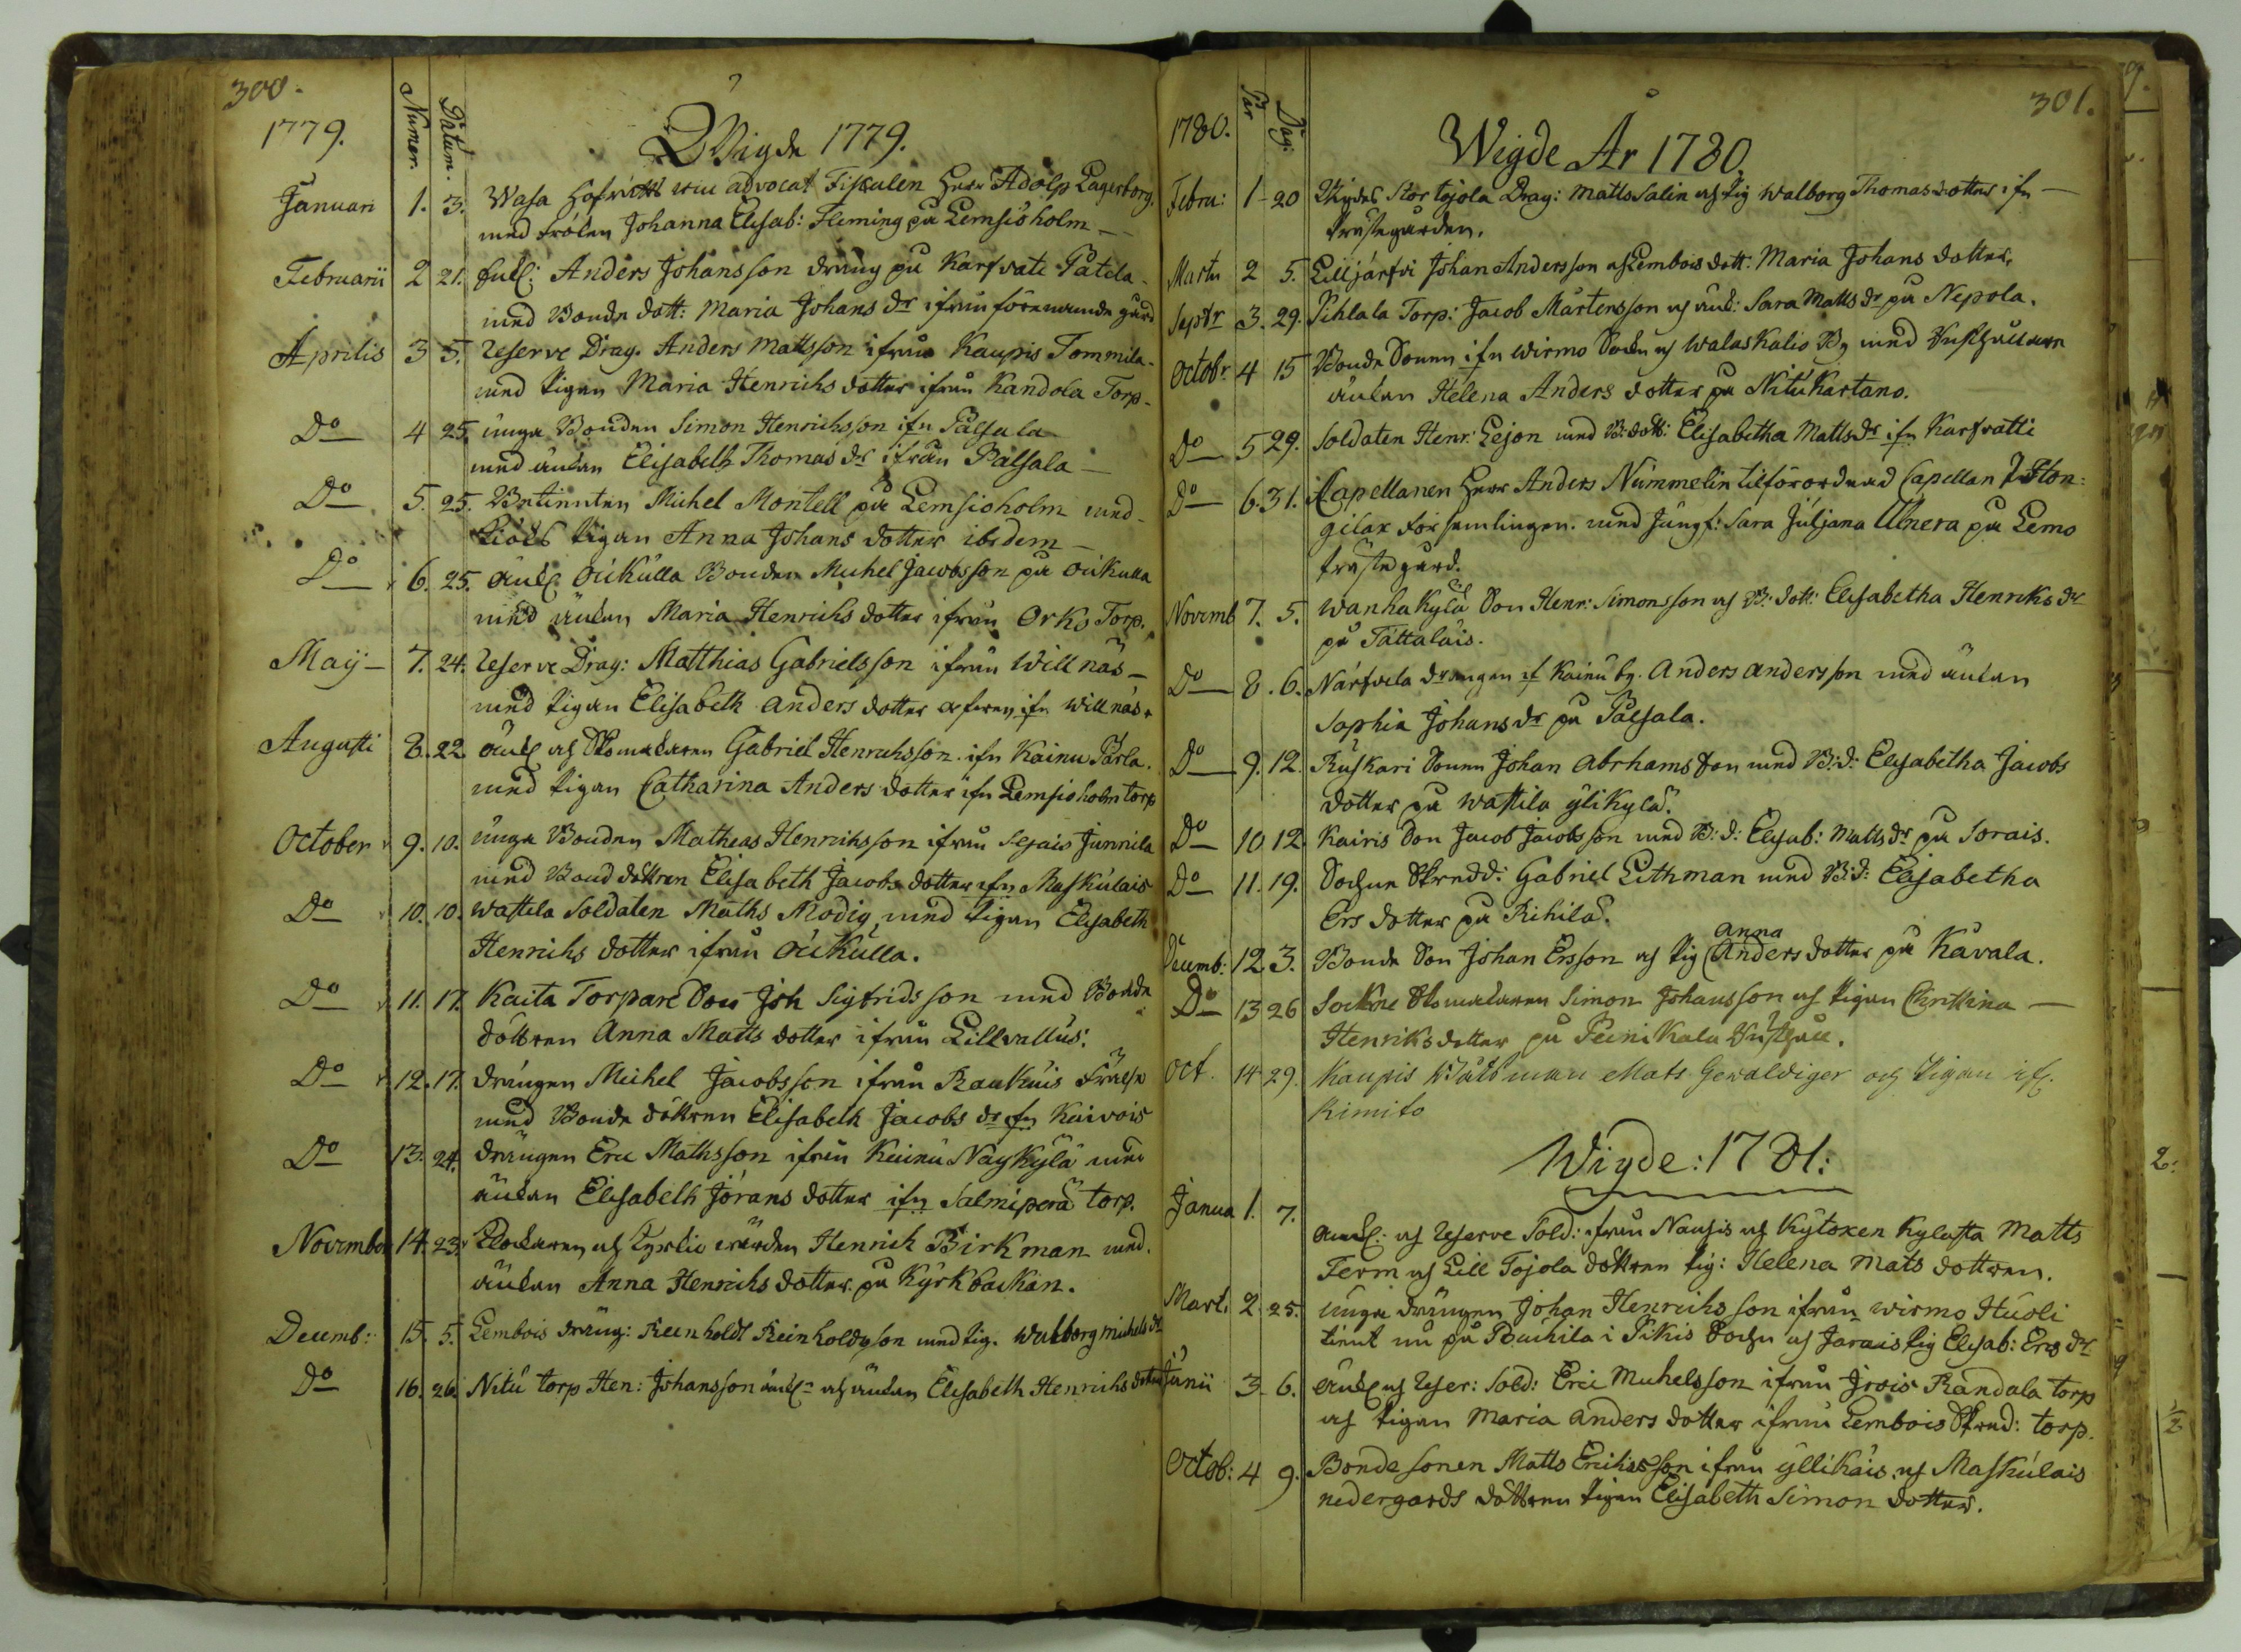 300.
1779.
Numer.
Datum.
Wigde 1779.
Januari 1. 3. Wasa Hofrätts vice advocat Fiskalen Herr Adolp Lagerborg,
med fröken Johanna Elisab: Fleming på Lemsioholm
Februarii 2 21. Anders Johansson dräng på Karfvati Patila
med Bonde dott: Maria Johans dr ifrån förenämde gård
Aprilis 3 5. Reserve Drag. Anders Mattsson ifrån Kaupis Tommila
med Pigan Maria Henrichs dotter ifrån Kandola Torp
Do 4 25. unga Bonden Simon Henrichsson ifn Palsala
med änkan Elisabeth Thomas dr ifrån Palsala
Do 5. 25. Betienten Michel Montell på Lemsioholm med
Pigan Anna Johans dotter ibidem
Do 6. 25. Enkl. Oukulla Bonden Michel Jacobsson på Oukulla
med änkan Maria Henrichs dotter ifrån Orko Torp.
Maÿ 7. 24. Reserve Drag: Matthias Gabrielsson ifrån Willnäs
med Pigan Elisabeth Anders dotter ifn Willnäs
Augusti 8. 22. Enkl. och Skomakaren Gabriel Henrichsson ifn Kainu Pärla.
med Pigan Catharina Anders dotter ifn Lemsioholm torp
October 9. 10. unga Bonden Matheas Henrichsson ifrån Sejais Junnila
med Bond dottren Elisabeth Jacobs dotter ifn Maskulais
Do 10. 10. Wastila Soldaten Maths Modig, med Pigan Elisabeth
Henrichs dotter ifrån Oukulla.
Do 11. 17. Kaita Torpare Son Joh Sigfridsson med Bonde
dottren Anna Matts dotter ifrån Lillvallus.
Do 12. 17. drängen Michel Jacobsson ifrån Raukuis
med Bonde dottren Elisabeth Jacobs dr ifn Kaivois
Do 13. 24. drängen Eric Mathsson ifrån Kainu Naykylä med
änkan Elisabeth Jörans dotter ifn Salmiperä torp.
November 14. 23. Klockaren och Henrich Birkman med
änkan Anna Henrichs dotter på Kyrkbackan.
Decemb: 15. 5. Lembois dräng: Reinholdt Reinholdsson med Pig. Walborg Michels dr
Do 16. 26. Nitu torp Hen: Johansson enkl. och änkan Elisabeth Henrichs dotter
301.
1780.
Par
Dag:
Wigde År 1780.
Febru: 1 20 Wigdes Stor Tojola Drag: Matts Salin och Pig Walborg Thomas dotter ifn
Prästegården.
Martii 2 5. Lilljärfvi Johan Andersson och Lembois dott. Maria Johans dotter,
Septr 3. 29. Pihlala Torp: Jacob Mårtensson och änk: Sara Matts dr på Nepola.
Octobr 4 15 Bonde Sonen ifn Wirmo Sochn och Walaskalio By med
änkan Helena Anders dotter på Nitu Kartano.
Do 5 29. Soldaten Henr: Lejon med B: dott: Elisabetha Matts dr ifn Karfvatti
Do 6. 31. Capellanen Herr Anders Nummelin tilförordnad Capellan i Hon-
gilax församlingen. med Jungf: Sara Juljana Ulnera på Lemo
Prästegård.
Novemb 7. 5. Wanhakylä Son Henr: Simonsson och B: dott: Elisabetha Henriks dr
på Tättaläis.
Do 8. 6. Närfvela drängen if Kainu by. Anders Andersson med änkan
Sophia Johans dr på Palsala.
Do 9. 12. Ruskari Sonen Johan Abrhams Son med B: d: Elisabetha Jacobs
dotter på Wastila ylikylä.
Do 10 12. Kairis Son Jacob Jacobsson med B: d: Elisab: Matts dr på Sorais.
Do 11. 19. Sochne Skredd: Gabriel Lithman med B: d: Elisabetha
Ers dotter på Rihilä.
Decemb: 12 3. Bonde Son Johan Ersson och Pig Anna Anders dotter på Kävala.
Do 13 26 Sockne Skomakaren Simon Johansson och Pigan Christina
Henriks dotter på Peinikala
Oct. 14 29. Kaupis Båtsman Mats Gewaldiger och Pigan if.
Kimito
Wigde: 1781:
Janua 1. 7. Enkl. och Reserve Sold: ifrån Nausis och Kytoxen Kylasta Matts
Term och Lill Tojola dottren Pig: Helena Mats dottren.
Mart. 2. 25. Unga drängen Johan Henrichsson ifrån Wirmo Husli
tient nu på Pauhila i Pikis Sochn och Jarais Pig Elisab: Ers dr
Junii 3. 6. Enkl och Reser: Sold: Eric Michelsson ifrån Jrois Randala torp
och Pigan Maria Anders dotter ifrån Lembois Skred: torp.
Octob: 4 9. Bonde sonen Matts Erichsson ifrån yllikäis och Maskulais
nedergards dottren Pigan Elisabeth Simon dotter.